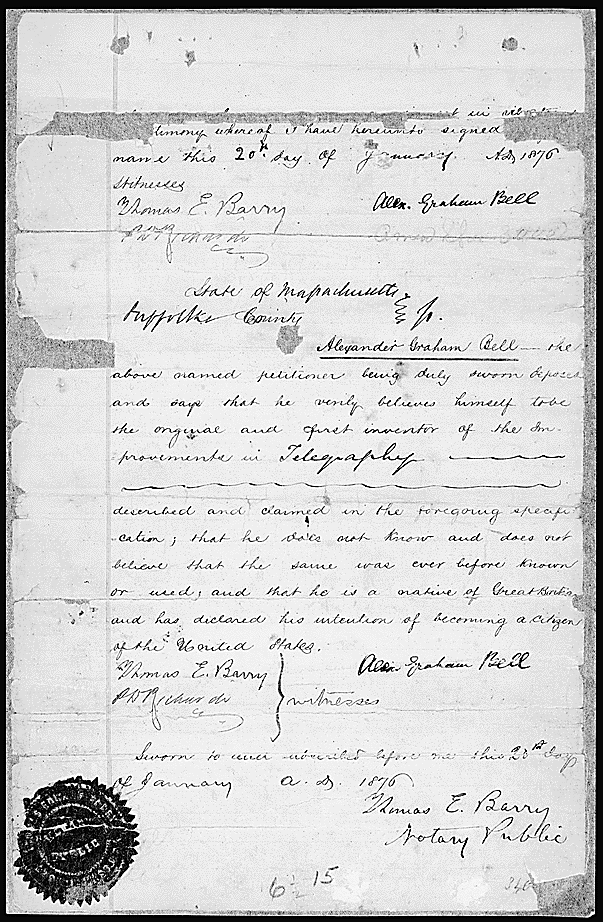 in
timony whereof I have hereunto signed
name this 20th day of January. A.D. 1876
Witnesses
Thomas E. Barry
Alex. Graham Bell
P D Richards
State of Massachusetts
Suffolk County
ss.
Alexander Graham Bell — the
above named petitioner being duly sworn deposes
and says that he verily believes himself to be
the original and first inventor of the Im-
provements in Telegraphy
described and claimed in the foregoing specifi-
-cation; that he does not know and does not
believe that the same was ever before known
or used; and that he is a native of Great Britain
and has declared his intention of becoming a citizen
of the United States.
Thomas E. Barry
Alex. Graham Bell
P D Richards
witnesses
Sworn to and subscribed before me this 20th day
of January A.D. 1876.
Thomas E. Barry
Notary Public
6 1/2 15